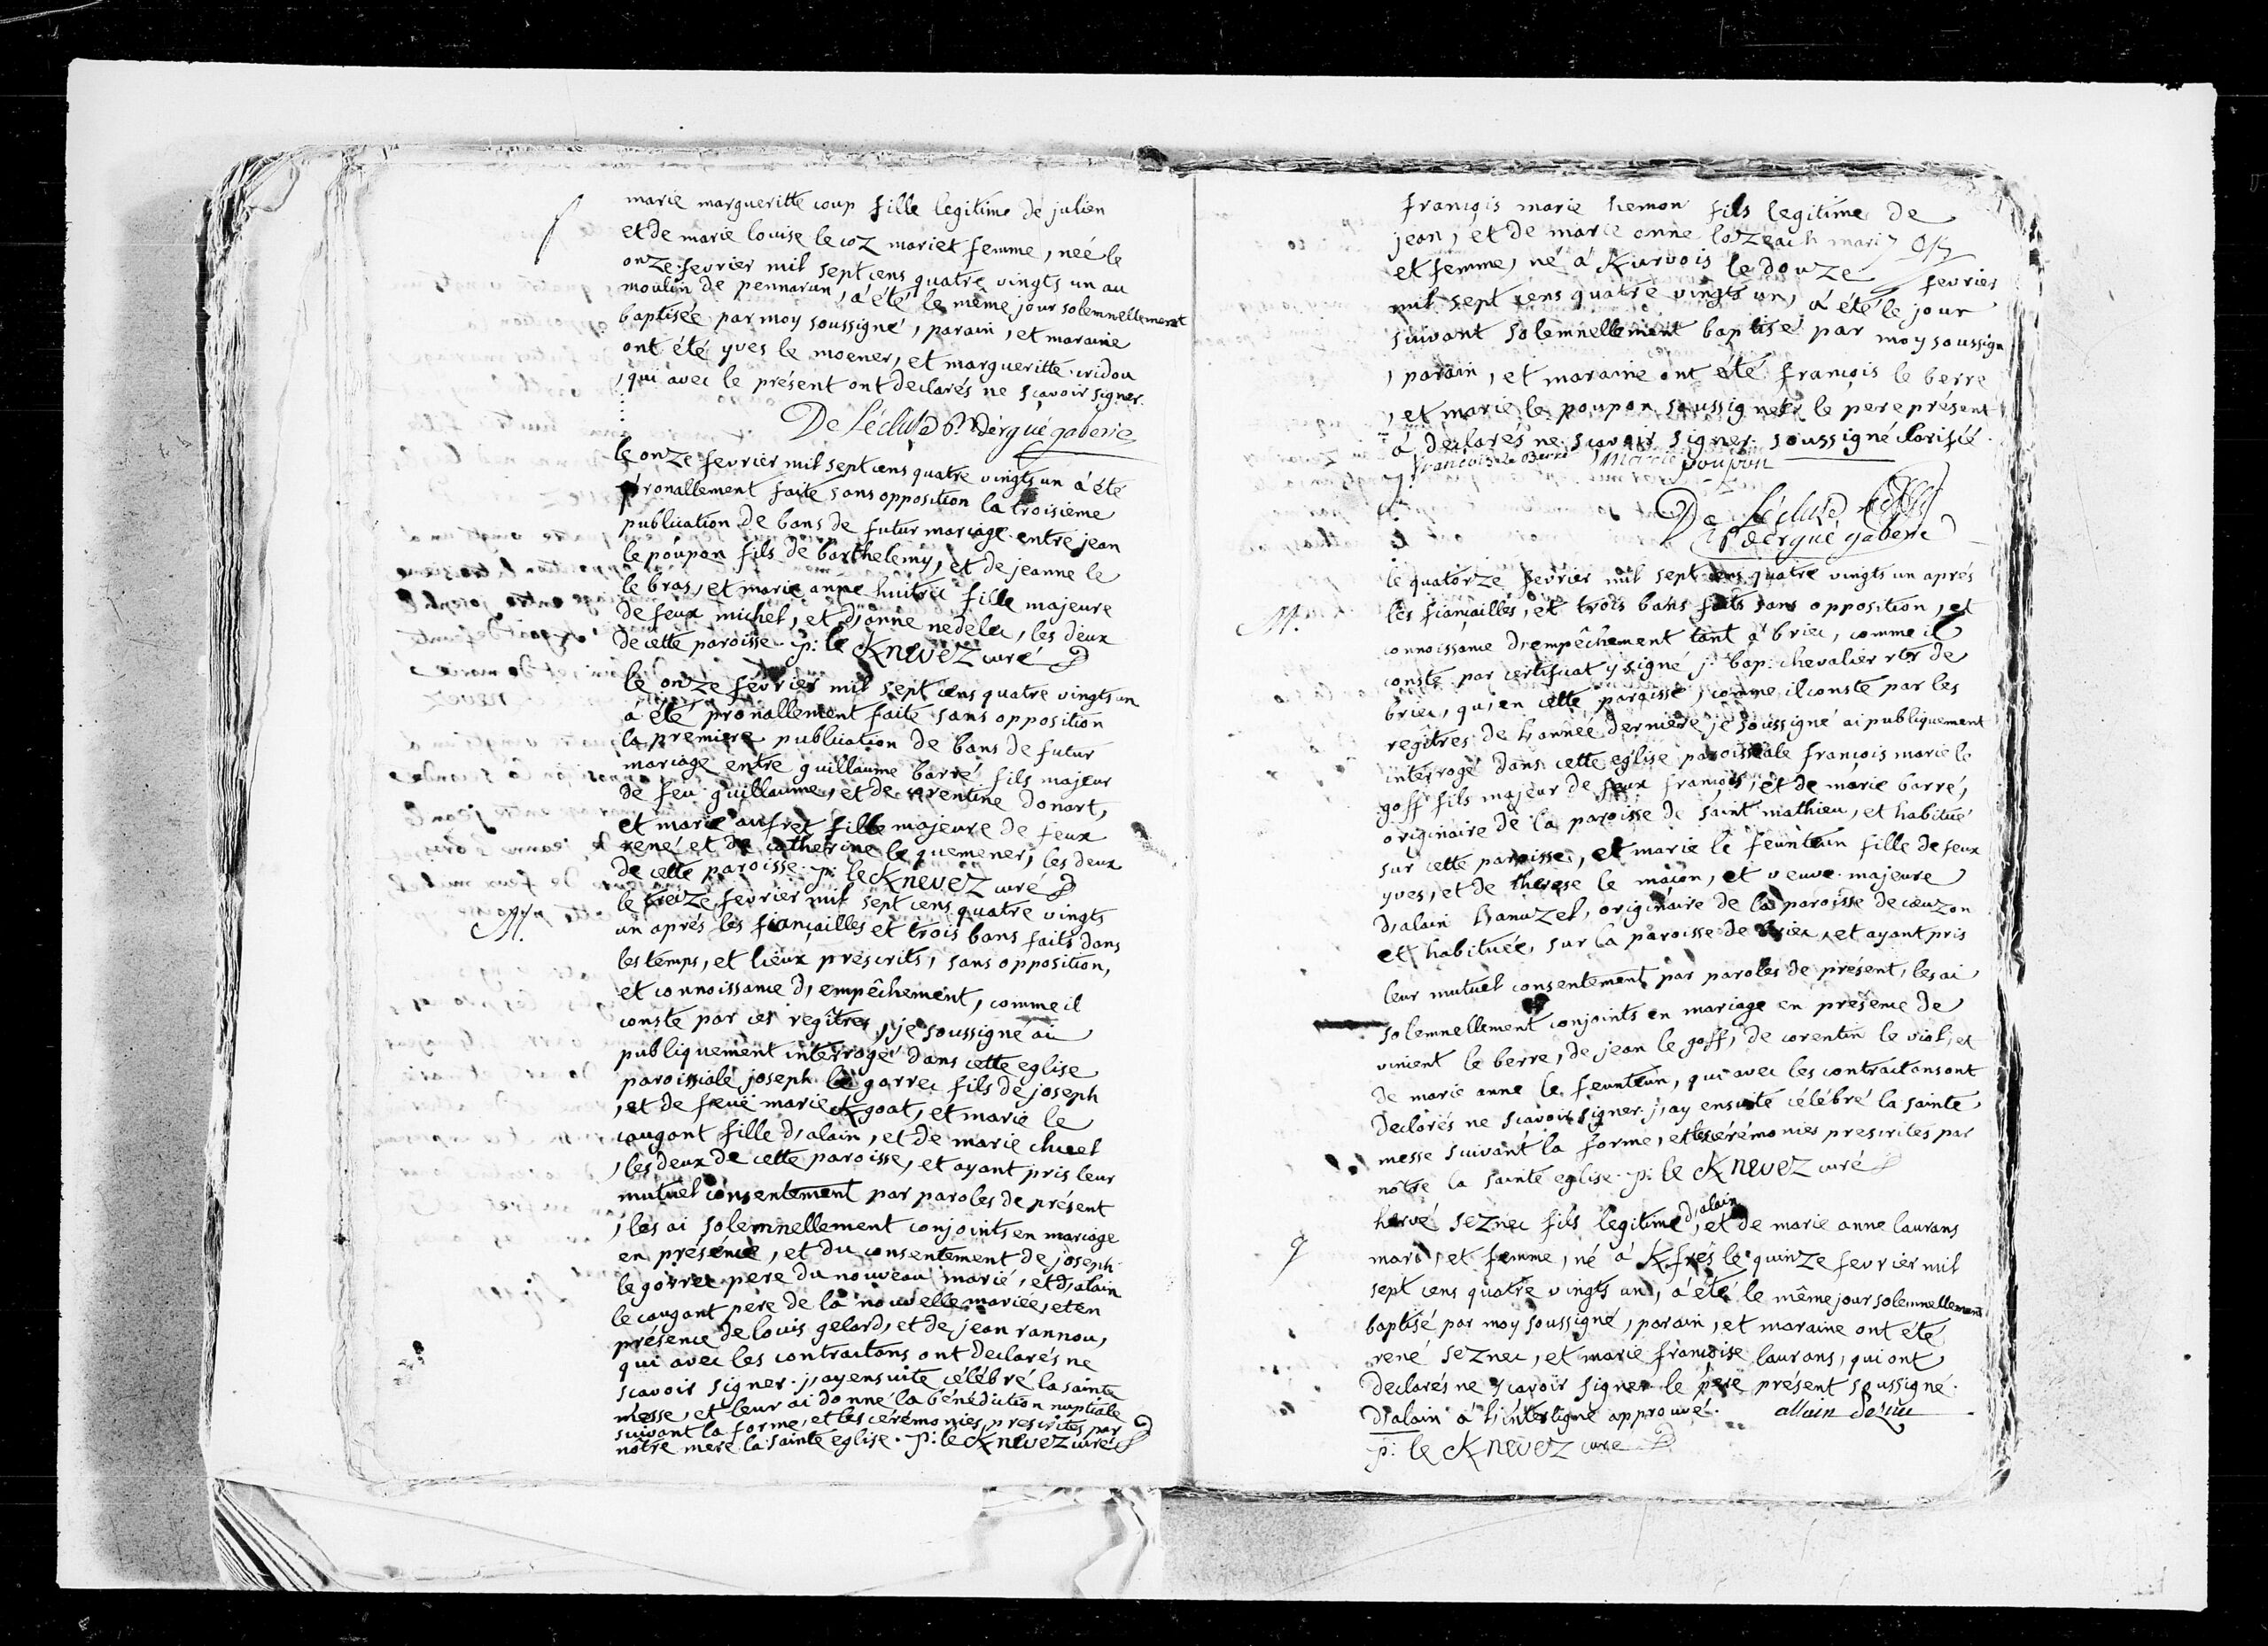 marie margueritte coup fille legitime de julien
et de marie louise le coz mari et femme, née le
onze fevrier mil sept cens quatre vingts un au
moulin de pennarun, á été le même jour solemnellement
baptisée par moy soussigné, parain, et maraine
ont été yves le moener, et margueritte cridou
, qui avec le présent ont declarés ne sçavoir signer.
De Lécluse Dérgué gaberic
le onze fevrier mil sept cens quatre vingts un á été
pronallement faite sans opposition la troisieme
publication de bans de futur mariage entre jean
le poupon fils de barthelemy, et de jeanne le
le bras, et marie anne huitric fille majeure
de feux michel, et d'anne nedelec, les deux
de cette paroisse. p: le Knevez curé
le onze février mil sept cens quatre vingts un
a été pronallement faite sans opposition
la premiere publication de bans de futur
mariage entre guillaume barré fils majeur
de feu guillaume, et de corentine donart,
et marie aufret fille majeure de feux
rené et de catherine le quemener, les deux
de cette paroisse. p: le Knevez curé
M.
le treize fevrier mil sept cens quatre vingts
un aprés les fiançailles et trois bans faits dans
les temps, et lieux préscrits, sans opposition,
et connoissance d'empêchement, comme il
conste par ces regîtres, je soussigné ai
publiquement interrogé dans cette eglise
paroissiale joseph le gorrec fils de joseph
, et de feue marie Kgoat, et marie le
caugant fille d'alain, et de marie
, les deux de cette paroisse, et ayant pris leur
mutuel consentement par paroles de présent
, les ai solemnellement conjoints en mariage
en présence, et du consentement de joseph
le gorrec pere du nouveau marié, et d'alain
le caugant pere de la nouvelle mariée, et en
présence de louis gelard, et de jean rannou,
qui avec les contractans ont declarés ne
scavoir signer. j'ay ensuite célébré la sainte
messe, et leur ai donné la bénédiction nuptiale
suivant la forme, et les cérémonies prescrites par
nôtre mere la sainte eglise. p: le Knevez curé
françois marie hemon fils legitime de
jean, et de marie anne lozeach mari
et femme, né á Kurvois le douze fevrier
mil sept cens quatre vingts un, á été le jour
suivant solemnellement baptisé par moy soussign
, parain, et maraine ont été françois le berre
, et marie le poupon soussignés le pere présent
á declarés ne scavoir signer. soussigné clarifié.
francois le Berre Marie poupon
De Lécluse
dergué gaberic
M.
le quatorze fevrier mil sept cens quatre vingts un aprés
les fiançailles, et trois bans faits sans opposition, et
connoissance d'empêchement tant á briec, comme il
conste par certificat y signé j: bap: chevalier rtr de
briec, qu'en cette paroisse, comme il conste par les
regîtres de l'année derniere, je soussigné ai publiquement
interrogé dans cette eglise paroissiale françois marie le
goff fils majeur de feux françois, et de marie barré,
originaire de la paroisse de saint mathieu, et habitué
sur cette paroisse, et marie le feunteun fille de feux
yves, et de therese le maçon, et veuve majeure
d'alain hanuzel, originaire de la paroisse de cuzon
et habituée sur la paroisse de briec, et ayant pris
leur mutuel consentement par paroles de présent, les ai
solemnellement conjoints en mariage en présence de
vincent le berre, de jean le goff, de corentin le viol, et
de marie anne le feunteun, qui avec les contractans ont
declarés ne scavoir signer. j'ay ensuite célébré la sainte
messe suivant la forme, et les cérémonies prescrites par
nôtre la sainte eglise. p: le Knevez curé
hervé seznec fils legitime d'alain, et de marie anne laurans
mari, et femme, né á Kfrés le quinze fevrier mil
sept cens quatre vingts un, á été le même jour solemnellement
baptisé par moy soussigné, parain, et maraine ont été
rené seznec, et marie françoise laurans, qui ont
declarés ne scavoir signer le pere présent soussigné.
d'alain á l'interligne approuvé. allain Seznec
p: le Knevez curé